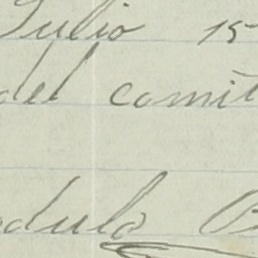 Julio 15
del comit
dulo B